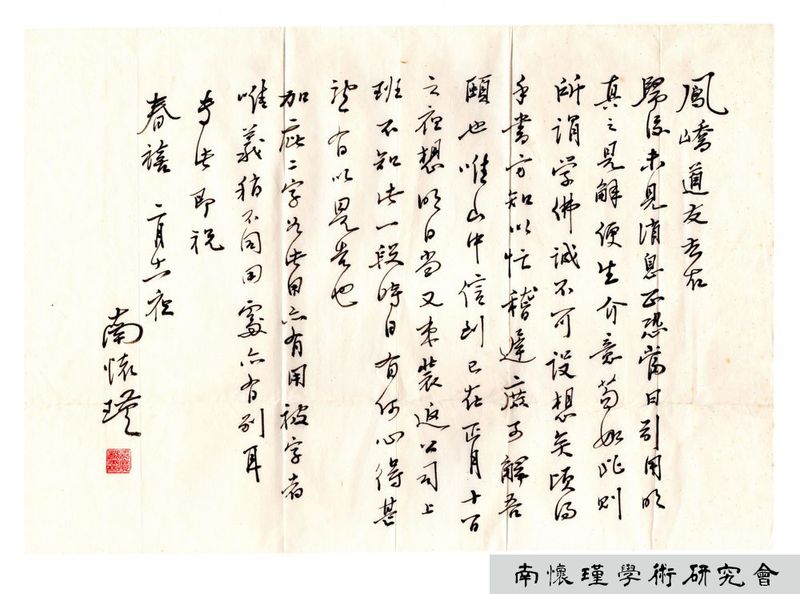 鳳嶠道友左右
歸後未見消息正恐當日引用明
真之見解便生介意苟如此則
所謂學佛誠不可設想矣頃得
手書方知以忙稽遲庶可解吾
頤也唯山中信到已在正月十一日
之夜想明日當又束裝返公司上
班不知此一段時日有何心得甚
望有以見告也
加庇二字為此用亦有用被字者
唯義稍不同用處亦有別耳
專此即祝
春禧 二月十一夜
南懷瑾
南懷瑾學術研究會